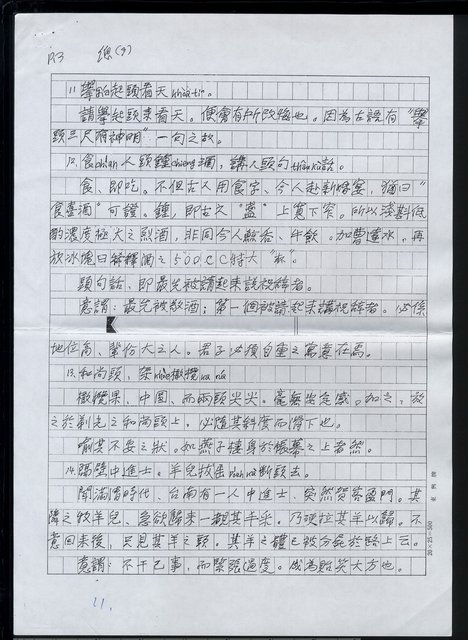 P.3 總(9)
11 舉頭起頭看天khòaⁿ-tiⁿ。
請舉起頭來看天。便會有所改悔也。因為古語有“舉
頭三尺有神明”一句之故。
12. 食chia̍h人頭鍾chiong酒，講人頭句thâu-kù話。
食、即吃。不但古人用食字、今人赴新婚宴，猶曰“
食喜酒”可證。鍾，即古之“盃”上寬下窄。所以淺斟低
酌濃度極大之烈酒，非同今人鯨吞、牛飲。加曹達水、再
放冰塊曰稀釋酒之500CC特大“杯”。
頭句話、即最先被請起來說祝辭者。
意謂：最先被敬酒；第一個被請起來講祝辭者。必係
地位高、輩份大之人。君子必須自重之寓意在焉。
13. 和尚頭，架khòe橄欖ka-ná
橄欖果、中圓、而兩頭尖尖。毫無安定感。如之、放
之於剃光之和尚頭上，必隨其斜度而滑下也。
喻其不安之狀。如燕子棲身於帳幕之上者然。
14. 隔壁中進士。羊兒拔斷頭去。
聞滿清時代、台南有一人中進士、突然賀客盈門。其
隣之牧羊兒、急欲歸來一觀其丰采。乃硬拉其羊以歸。不
意回來後，只見其羊之頭。其羊之體已被分屍於路上云。
意謂：不干己事，而緊張過度。成為貽笑大方也。
20×25=500
11.